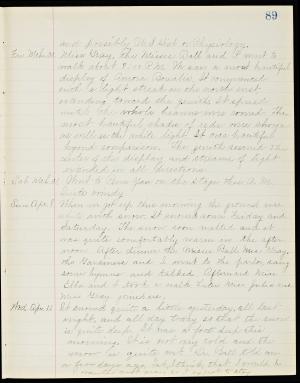 89
and possibly U.S. Hist. or Physiology.
Miss Gray, the Misses Ball and I went to
walk about 8:00 P.M. There was a most beautiful
display of Aurora Borealis. It commenced
such a light streak in the north east
extending toward the zenith. It spread
until the whole heavens were
most beautiful shades of were
as well as the white light. It was beautiful
beyond comparison. The zenith seemed the
center of the display and streams of light
extended in all directions.
Went to Ann on the stage this A.M.
Quite windy.
When we got up this morning the ground was
white with snow. It snowed some Friday and
Saturday. The snow soon melted and it
was quite comfortably warm in the after
noon. After dinner the Misses Ball, Miss Gray,
the and I went to the parlor, sang
some hymns and talked. Afterward Miss
Ella and I took a walk. Later Miss Julia and
Miss Gray
It snowed quite a little yesterday, all last
night, and all day today so that the snow
is quite deep. It was a foot deep this
morning. It is not very cold and the
snow is quite wet. Dr. Ball told me
a few days ago